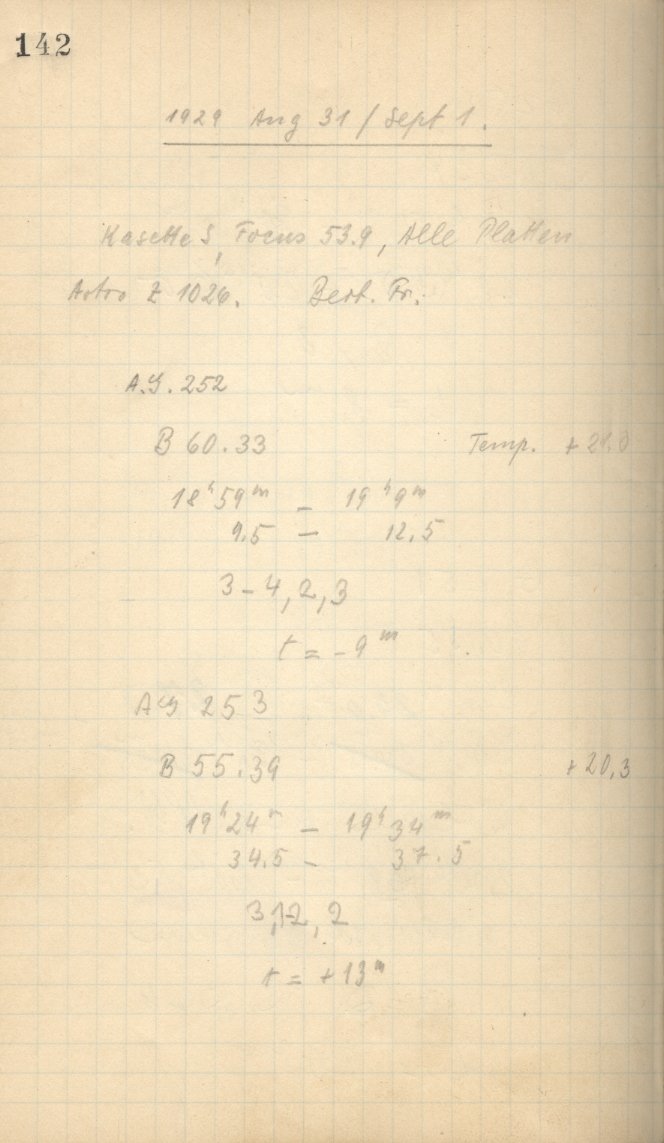 142
1929 Aug 31 / Sept 1.
Kasette S, Focus 53.9, Alle Platten
Astro Z 1026. Beob. Pr.
A.G. 252
B 60.33 Temp. +21.0
18ʰ59ᵐ – 19ʰ9ᵐ
9.5 – 12.5
3-4, 2, 3
t = -9ᵐ
AG 253
B 55.39 +20,3
19ʰ24ᵐ – 19ʰ34ᵐ
34.5 – 37.5
2
t = +13ᵐ